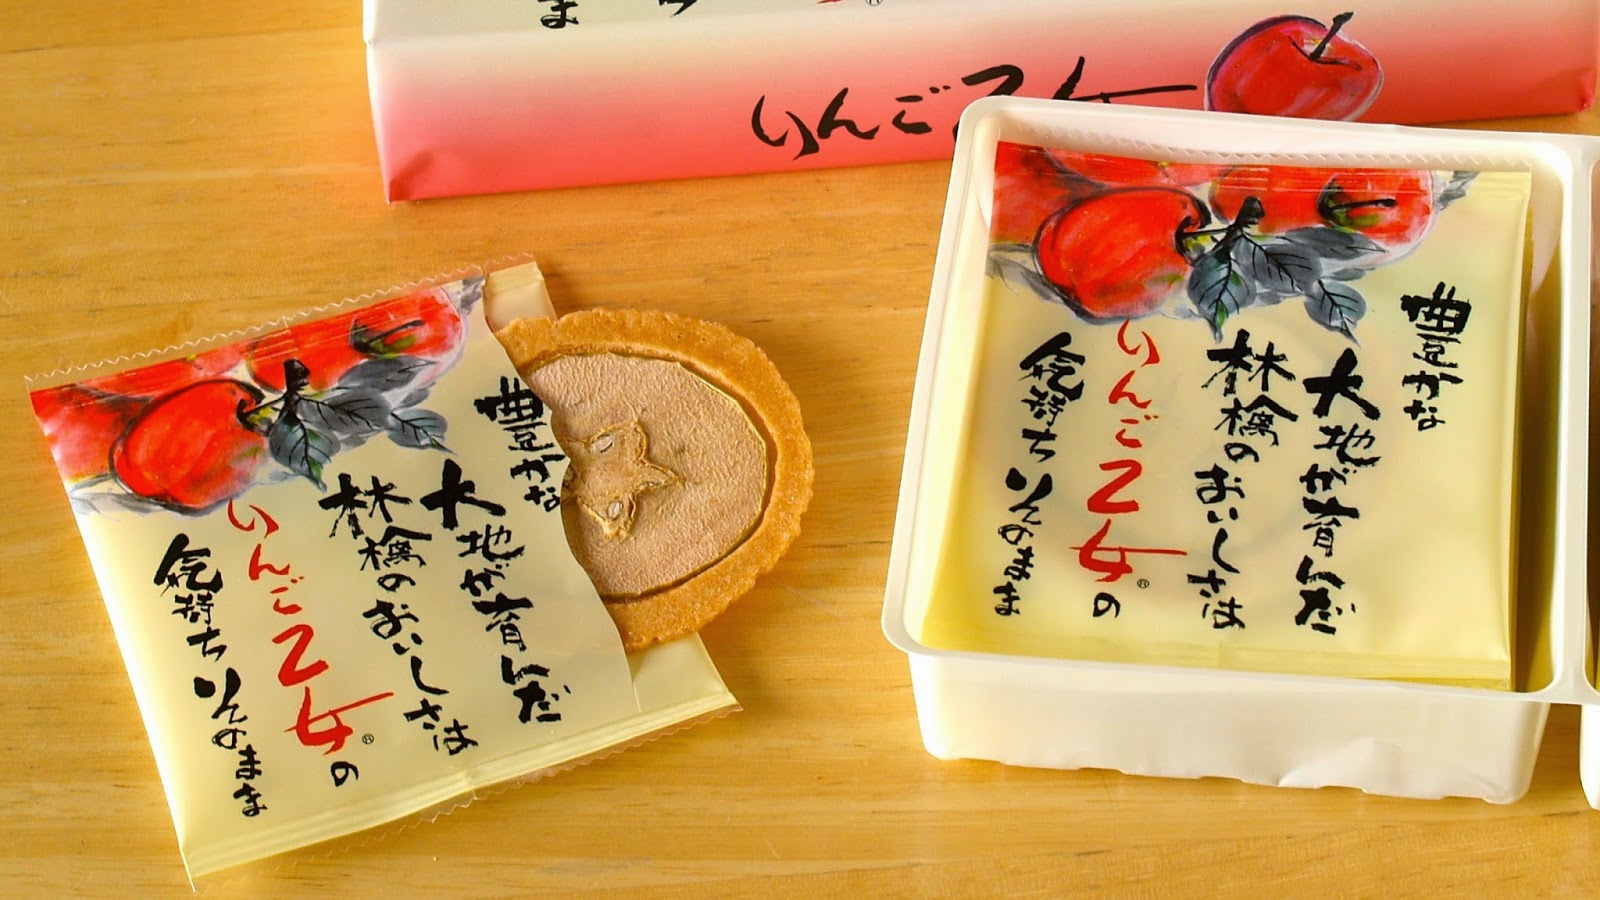 りんご乙女
®
ま
®
豊かな
大地が育んだ
林檎のおいしさは
りんご乙女®の
気持ちそのまま
豊かな
大地が育んだ
林檎のおいしさは
りんご乙女®の
気持ちそのまま